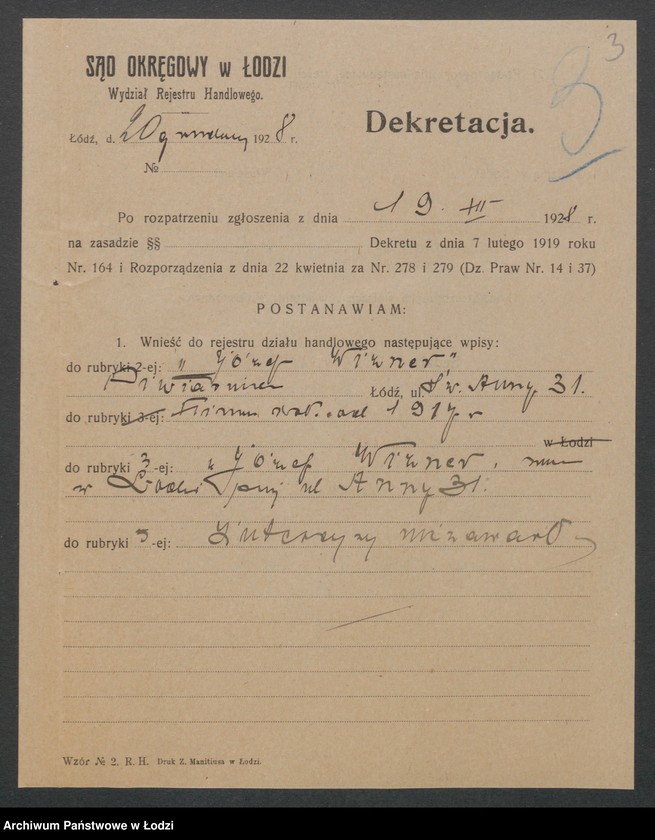 3
3
SĄD OKRĘGOWY w ŁODZI
Wydział Rejestru Handlowego.
Łódź, d. 20 grudnia 1928 r.
Dekretacja.
№
Po rozpatrzeniu zgłoszenia z dnia 19 XII 1928 r.
na zasadzie §§ Dekretu z dnia 7 lutego 1919 roku
Nr. 164 i Rozporządzenia z dnia 22 kwietnia za Nr. 278 i 279 (Dz. Praw Nr. 14 i 37)
POSTANAWIAM:
1. Wnieść do rejestru działu handlowego następujące wpisy:
do rubryki 2-ej: „Józef Wizner"
Piwiarnia Łódź, ul. Św. Anny 31.
do rubryki 3-ej: Firma istn. od 1917 r
w Łodzi
do rubryki 3-ej: „Józef Wizner, zam
w Łodzi przy ul Anny 31.
do rubryki 5-ej: Intercyzy nie zawarł
Wzór № 2. R. H. Druk Z. Manitiusa w Łodzi.
Archiwum Państwowe w Łodzi